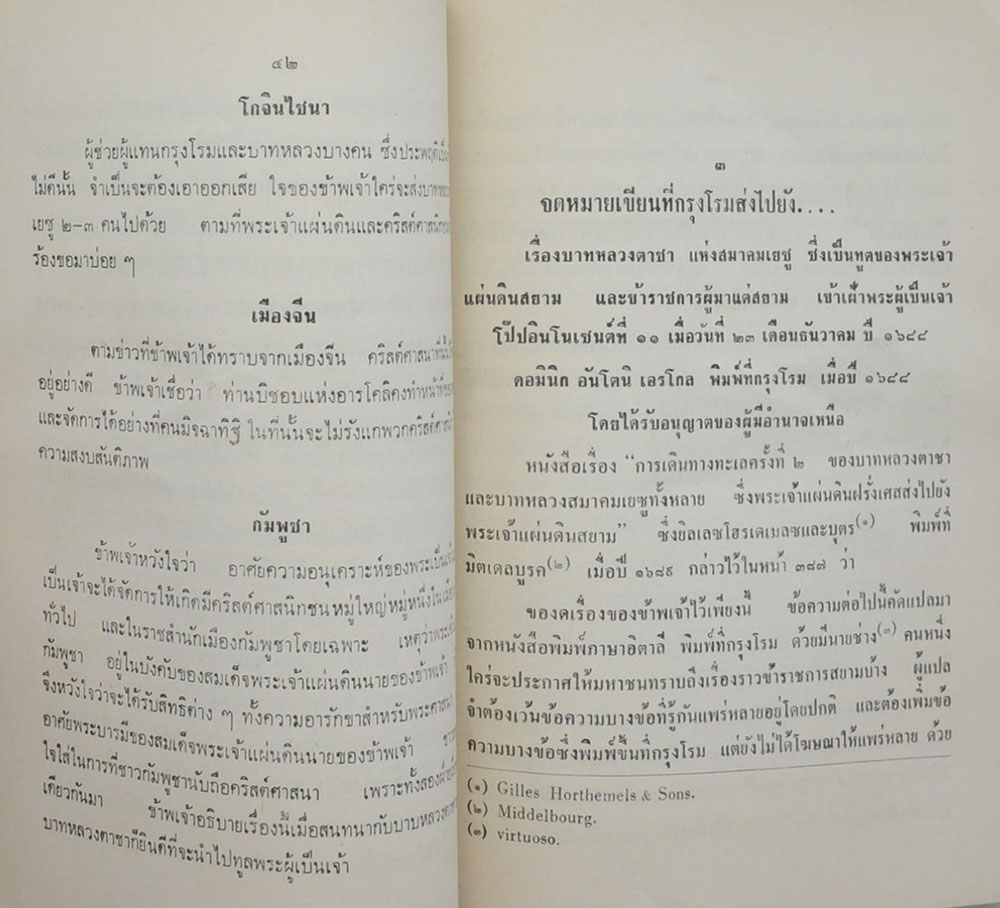 ๔๒
โกจินไชนา
ผู้ช่วยผู้แทนกรุงโรมและบาทหลวงบางคน ซึ่งประพฤติ
ไม่ดีนั้น จำเป็นจะต้องเอาออกเสีย ใจของข้าพเจ้าใคร่จะส่งบาท
เยซู ๒-๓ คนไปด้วย ตามที่พระเจ้าแผ่นดินและคริสต์ศาสนิก
ร้องขอมาบ่อย ๆ
เมืองจีน
ตามข่าวที่ข้าพเจ้าได้ทราบจากเมืองจีน คริสต์ศาสนา
อยู่อย่างดี ข้าพเจ้าเชื่อว่า ท่านบิชอบแห่งอารโคลิคงทำหน้าที่
และจัดการได้อย่างที่คนมิจฉาทิฐิ ในที่นั้นจะไม่รังแกพวกคริสต์ศาสนิ
ความสงบสันติภาพ
กัมพูชา
ข้าพเจ้าหวังใจว่า อาศัยความอนุเคราะห์ของพระเป็น
เป็นเจ้าจะได้จัดการให้เกิดมีคริสต์ศาสนิกชนหมู่ใหญ่หมู่หนึ่งใน
ทั่วไป และในราชสำนักเมืองกัมพูชาโดยเฉพาะ เหตุว่า
กัมพูชา อยู่ในบังคับของสมเด็จพระเจ้าแผ่นดินนายของข้าพเจ้า
จึงหวังใจว่าจะได้รับสิทธิต่าง ๆ ทั้งความอารักขาสำหรับพระศาสนา
อาศัยพระบารมีของสมเด็จพระเจ้าแผ่นดินนายของข้าพเจ้า
ใจใส่ในการที่ชาวกัมพูชานับถือคริสต์ศาสนา เพราะทั้งสอง
เดียวกันมา ข้าพเจ้าอธิบายเรื่องนี้เมื่อสนทนากับบาบหลวง
บาทหลวงตาชาก็ยินดีที่จะนำไปทูลพระผู้เป็นเจ้า
๓
จดหมายเขียนที่กรุงโรมส่งไปยัง....
เรื่องบาทหลวงตาชา แห่งสมาคมเยซู ซึ่งเป็นทูตของพระเจ้า
แผ่นดินสยาม และข้าราชการผู้มาแต่สยาม เข้าเฝ้าพระผู้เป็นเจ้า
โป๊ปอินโนเซนต์ที่ ๑๑ เมื่อวันที่ ๒๓ เดือนธันวาคม ปี ๑๖๘๘
ดอมินิก อันโตนิ เอรโกล พิมพ์ที่กรุงโรม เมื่อปี ๑๖๘๘
โดยได้รับอนุญาตของผู้มีอำนาจเหนือ
หนังสือเรื่อง "การเดินทางทะเลครั้งที่ ๒ ของบาทหลวงตาชา
และบาทหลวงสมาคมเยซูทั้งหลาย ซึ่งพระเจ้าแผ่นดินฝรั่งเศสส่งไปยัง
พระเจ้าแผ่นดินสยาม" ซึ่งยิลเลซโฮรเดเมลซและบุตร(๑) พิมพ์ที่
มิตเดลบูรค(๒) เมื่อปี ๑๖๘๙ กล่าวไว้ในหน้า ๓๘๗ ว่า
ของดเรื่องของข้าพเจ้าไว้เพียงนี้ ข้อความต่อไปนี้คัดแปลมา
จากหนังสือพิมพ์ภาษาอิตาลี พิมพ์ที่กรุงโรม ด้วยมีนายช่าง(๓) คนหนึ่ง
ใคร่จะประกาศให้มหาชนทราบถึงเรื่องราวข้าราชการสยามบ้าง ผู้แปล
จำต้องเว้นข้อความบางข้อที่รู้กันแพร่หลายอยู่โดยปกติ และต้องเพิ่มข้อ
ความบางข้อซึ่งพิมพ์ขึ้นที่กรุงโรม แต่ยังไม่ได้โฆษณาให้แพร่หลาย ด้วย
(๑) Gilles Horthemels & Sons.
(๒) Middelbourg.
(๓) virtuoso.